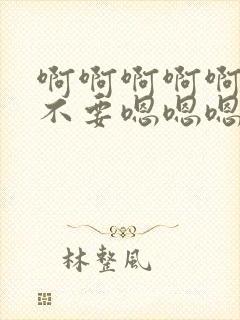 啊啊啊啊啊
不要嗯嗯嗯
林整风